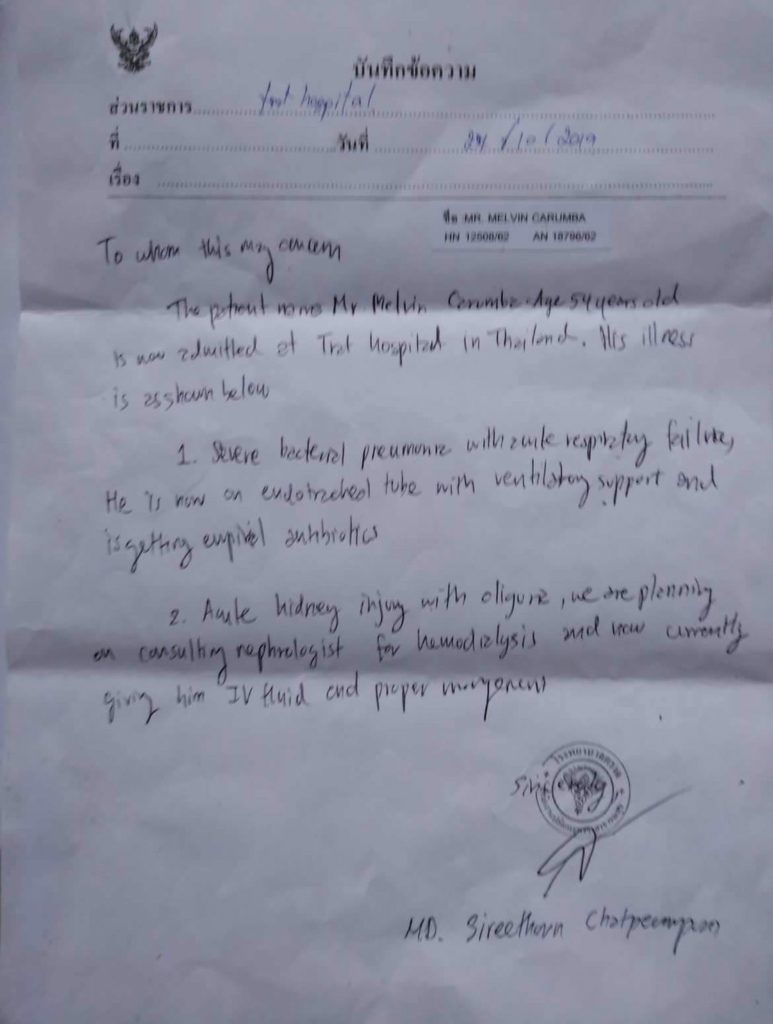 บันทึกข้อความ
ส่วนราชการ trat hospital
ที่ วันที่ 24/10/2019
เรื่อง
ชื่อ MR. MELVIN CARUMBA
HN 12506/62 AN 18796/62
To whom this may concern
The patient names Mr Melvin Carumba Age 54 years old
is now admitted at Trat hospital in Thailand. His illness
is as shown below
1. Severe bacterial pneumonia with acute respiratory failure,
He is now on endotracheal tube with ventilatory support and
is getting empirical antibiotics
2. Acute kidney injury with oliguria, we are planning
on consulting nephrologist for hemodialysis and now currently
giving him IV fluid and proper management
MD. Sireethorn